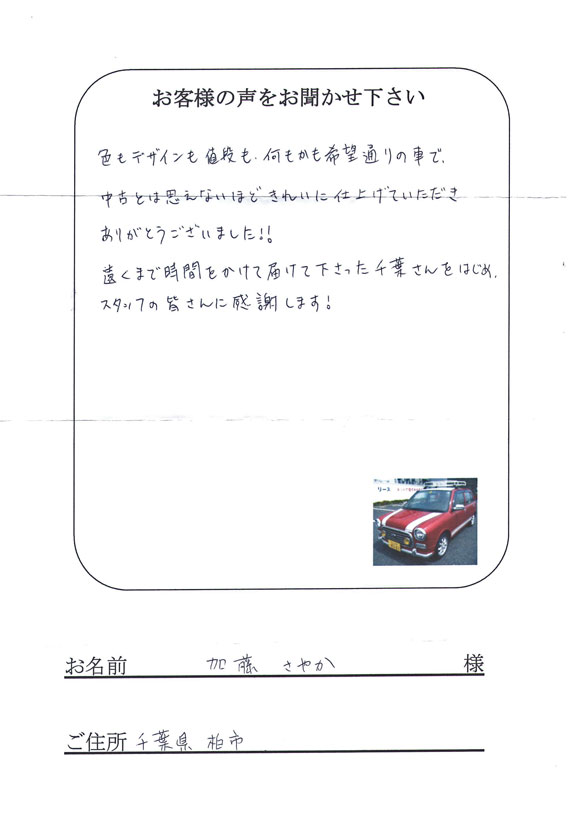 お客様の声をお聞かせ下さい
色もデザインも値段も、何もかも希望通りの車で、
中古とは思えないほどきれいに仕上げていただき
ありがとうございました!!
遠くまで時間をかけて届けて下さった千葉さんをはじめ、
スタッフの皆さんに感謝します!
リース
お名前 加藤 さやか 様
ご住所 千葉県 柏市